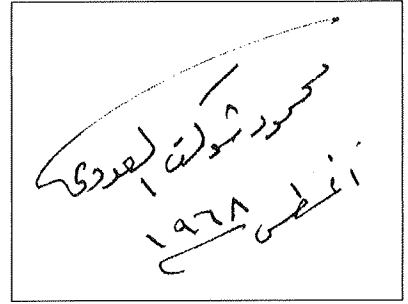 محمود شوكت العدوي
أغسطس ١٩٦٨